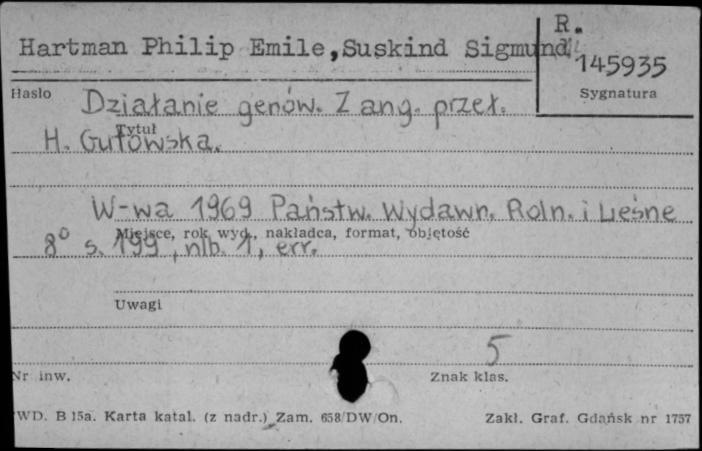 R.
Hartman Philip Emile,Suskind Sigmund
145935
Hasło
Sygnatura
Działanie genów. Z ang. przeł.
Tytuł
H. Gutowska.
W-wa 1969 Państw. Wydawn. Roln. i Leśne
Miejsce, rok wyd., nakładca, format, objętość
8° s. 199, nlb. 1, err.
Uwagi
5
Nr inw.
Znak klas.
WD. B 15a. Karta katal. (z nadr.) Zam. 658/DW/On.
Zakł. Graf. Gdańsk nr 1757